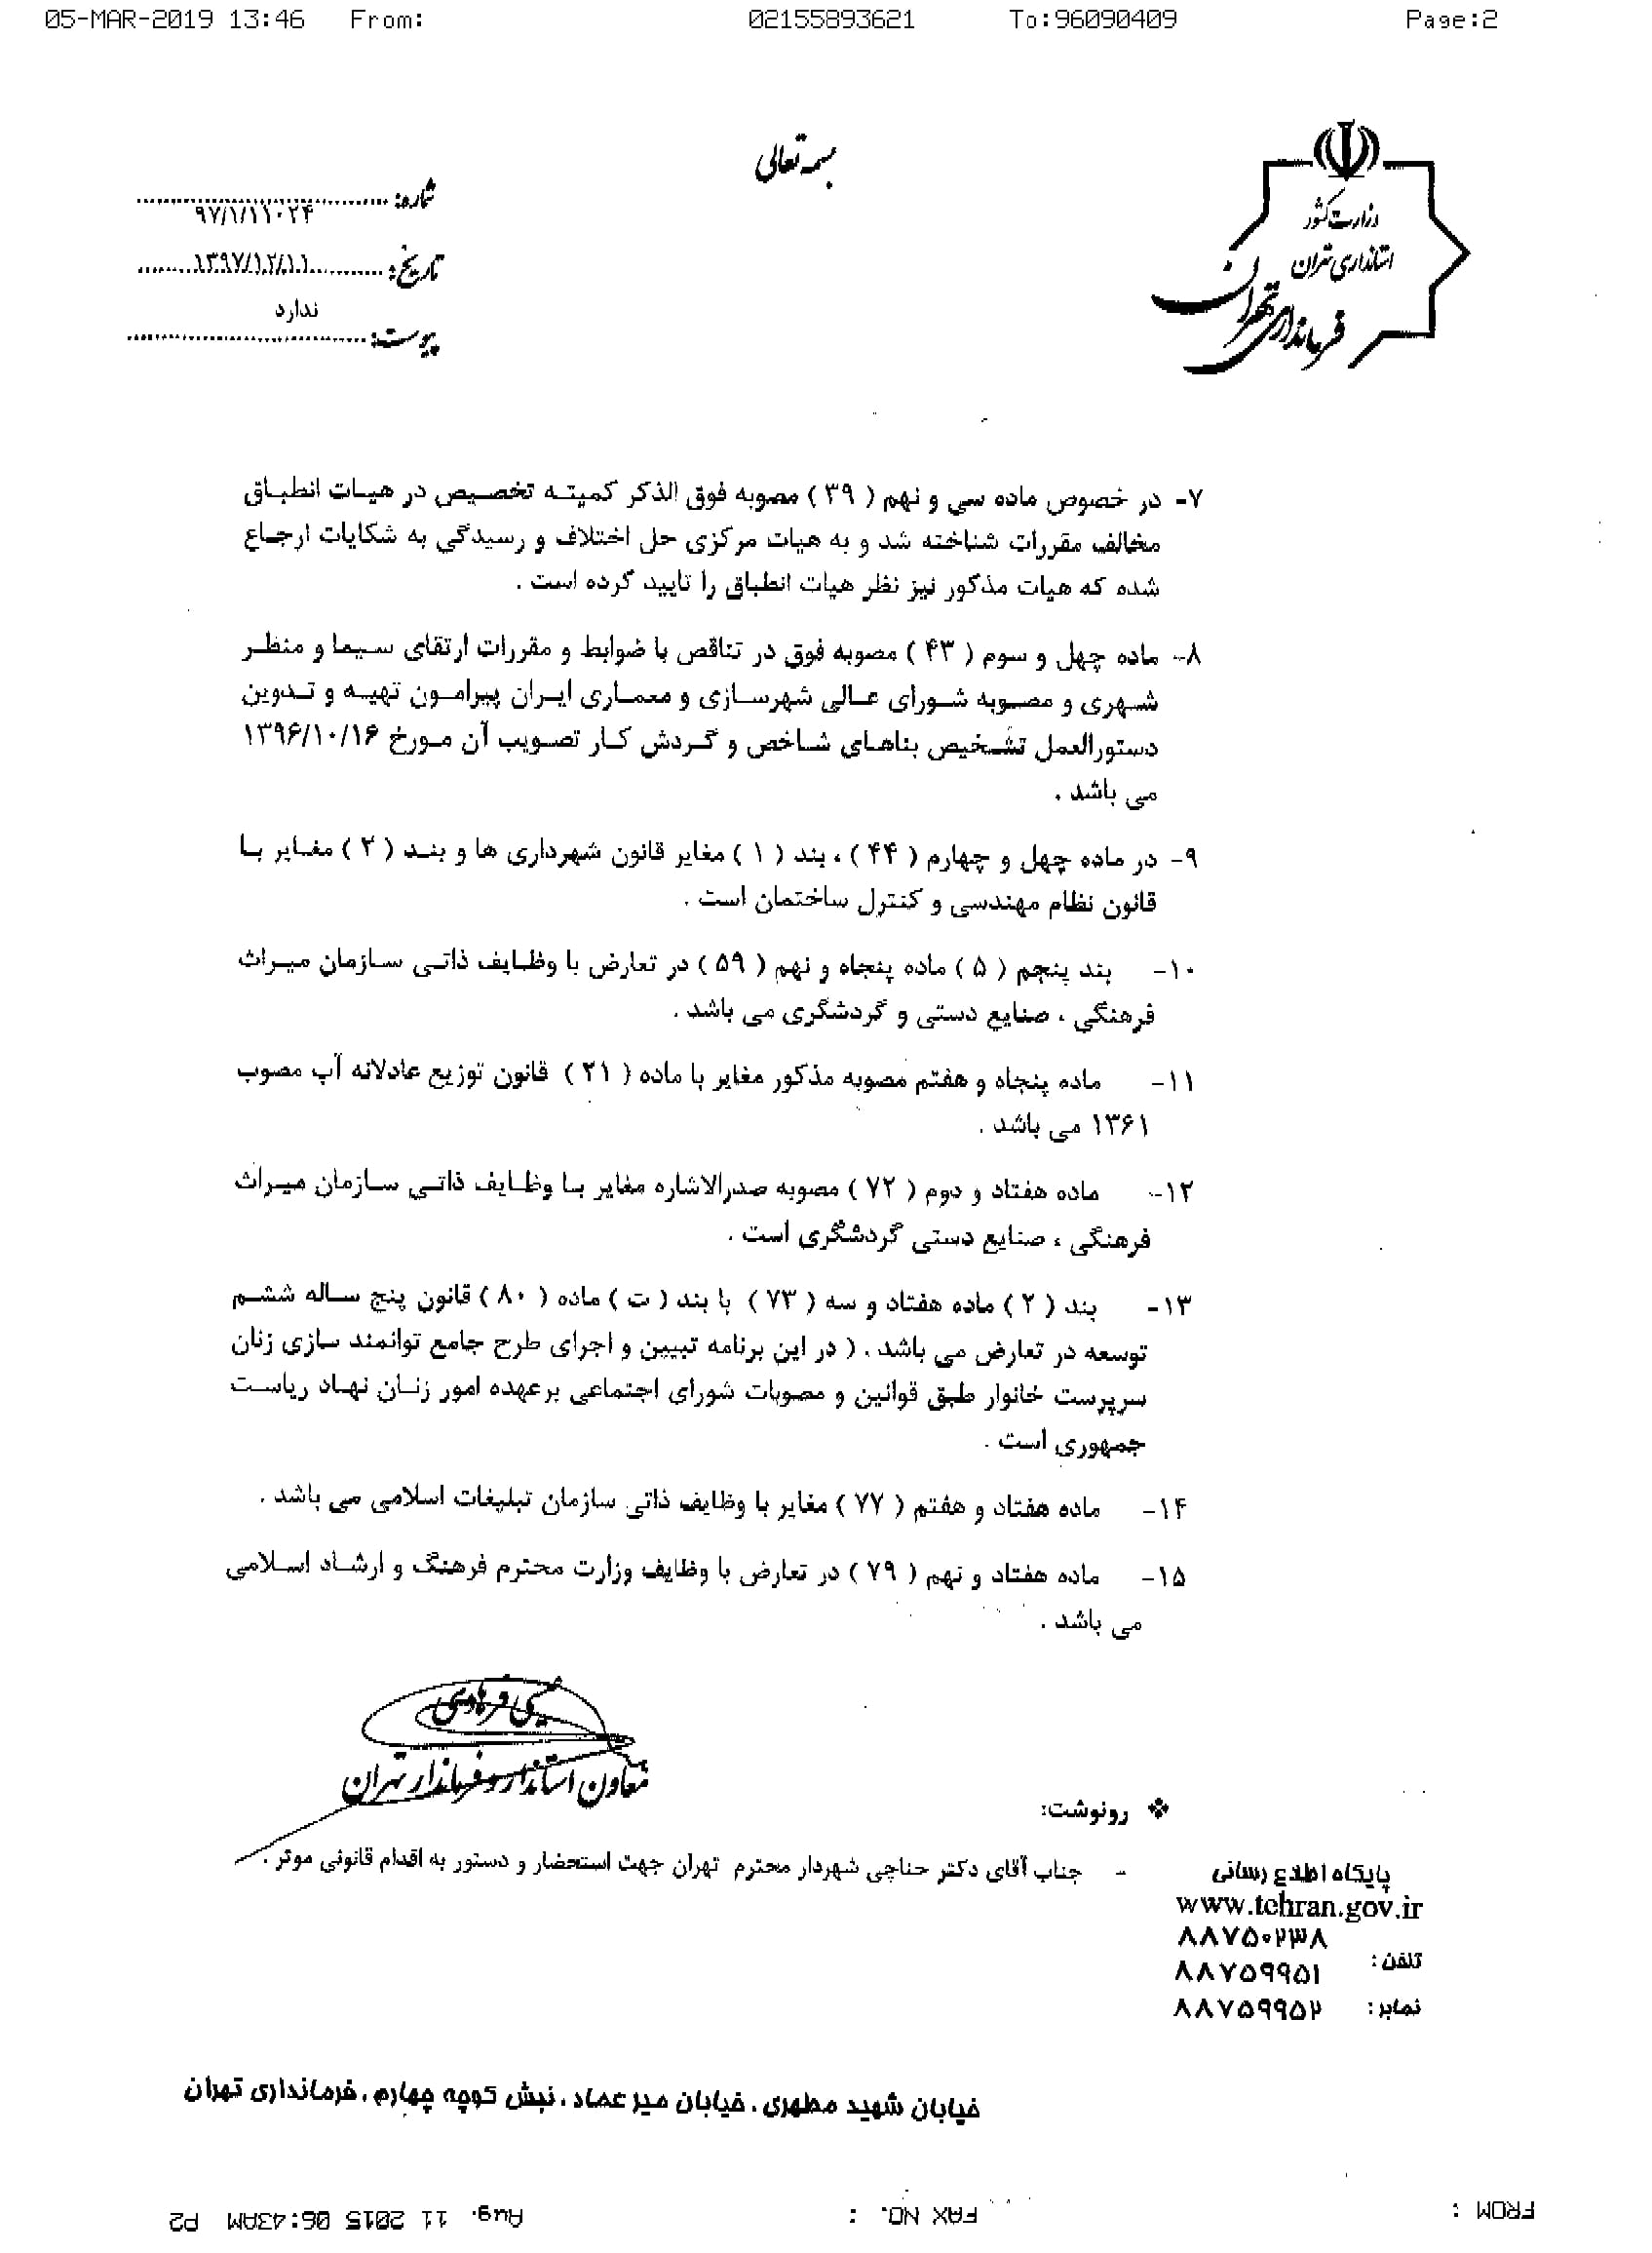 05-MAR-2019 13:46 From: 02155893621 To:96090409 Page:2
بسمه تعالی
وزارت کشور
استانداری تهران
فرمانداری تهران
شماره: ۹۷/۱/۱۱۰۲۴
تاریخ: ۱۳۹۷/۱۲/۱۱
ندارد
پیوست:
۷- در خصوص ماده سی و نهم ( ۳۹ ) مصوبه فوق الذکر کمیته تخصیص در هیات انطباق
مخالف مقررات شناخته شد و به هیات مرکزی حل اختلاف و رسیدگی به شکایات ارجاع
شده که هیات مذکور نیز نظر هیات انطباق را تایید کرده است .
۸- ماده چهل و سوم ( ۴۳ ) مصوبه فوق در تناقص با ضوابط و مقررات ارتقای سیما و منظر
شهری و مصوبه شورای عالی شهرسازی و معماری ایران پیرامون تهیه و تدوین
دستورالعمل تشخیص بناهای شاخص و گردش کار تصویب آن مورخ ۱۳۹۶/۱۰/۱۶
می باشد .
۹- در ماده چهل و چهارم ( ۴۴ ) ، بند ( ۱ ) مغایر قانون شهرداری ها و بند ( ۲ ) مغایر با
قانون نظام مهندسی و کنترل ساختمان است .
۱۰- بند پنجم ( ۵ ) ماده پنجاه و نهم ( ۵۹ ) در تعارض با وظایف ذاتی سازمان میراث
فرهنگی ، صنایع دستی و گردشگری می باشد .
۱۱- ماده پنجاه و هفتم مصوبه مذکور مغایر با ماده ( ۲۱ ) قانون توزیع عادلانه آب مصوب
۱۳۶۱ می باشد .
۱۲- ماده هفتاد و دوم ( ۷۲ ) مصوبه صدرالاشاره مغایر با وظایف ذاتی سازمان میراث
فرهنگی ، صنایع دستی گردشگری است .
۱۳- بند ( ۲ ) ماده هفتاد و سه ( ۷۳ ) با بند ( ت ) ماده ( ۸۰ ) قانون پنج ساله ششم
توسعه در تعارض می باشد . ( در این برنامه تبیین و اجرای طرح جامع توانمند سازی زنان
سرپرست خانوار طبق قوانین و مصوبات شورای اجتماعی برعهده امور زنان نهاد ریاست
جمهوری است .
۱۴- ماده هفتاد و هفتم ( ۷۷ ) مغایر با وظایف ذاتی سازمان تبلیغات اسلامی می باشد .
۱۵- ماده هفتاد و نهم ( ۷۹ ) در تعارض با وظایف وزارت محترم فرهنگ و ارشاد اسلامی
می باشد .
عیسی فرهادی
معاون استاندار و فرماندار تهران
❖ رونوشت:
- جناب آقای دکتر حناچی شهردار محترم تهران جهت استحضار و دستور به اقدام قانونی موثر .
پایگاه اطلاع رسانی
www.tehran.gov.ir
تلفن: ۸۸۷۵۰۲۳۸
۸۸۷۵۹۹۵۱
نمابر: ۸۸۷۵۹۹۵۲
خیابان شهید مطهری ، خیابان میر عماد ، نبش کوچه چهارم ، فرمانداری تهران
FROM : FAX NO. : Aug. 11 2015 06:43AM P2